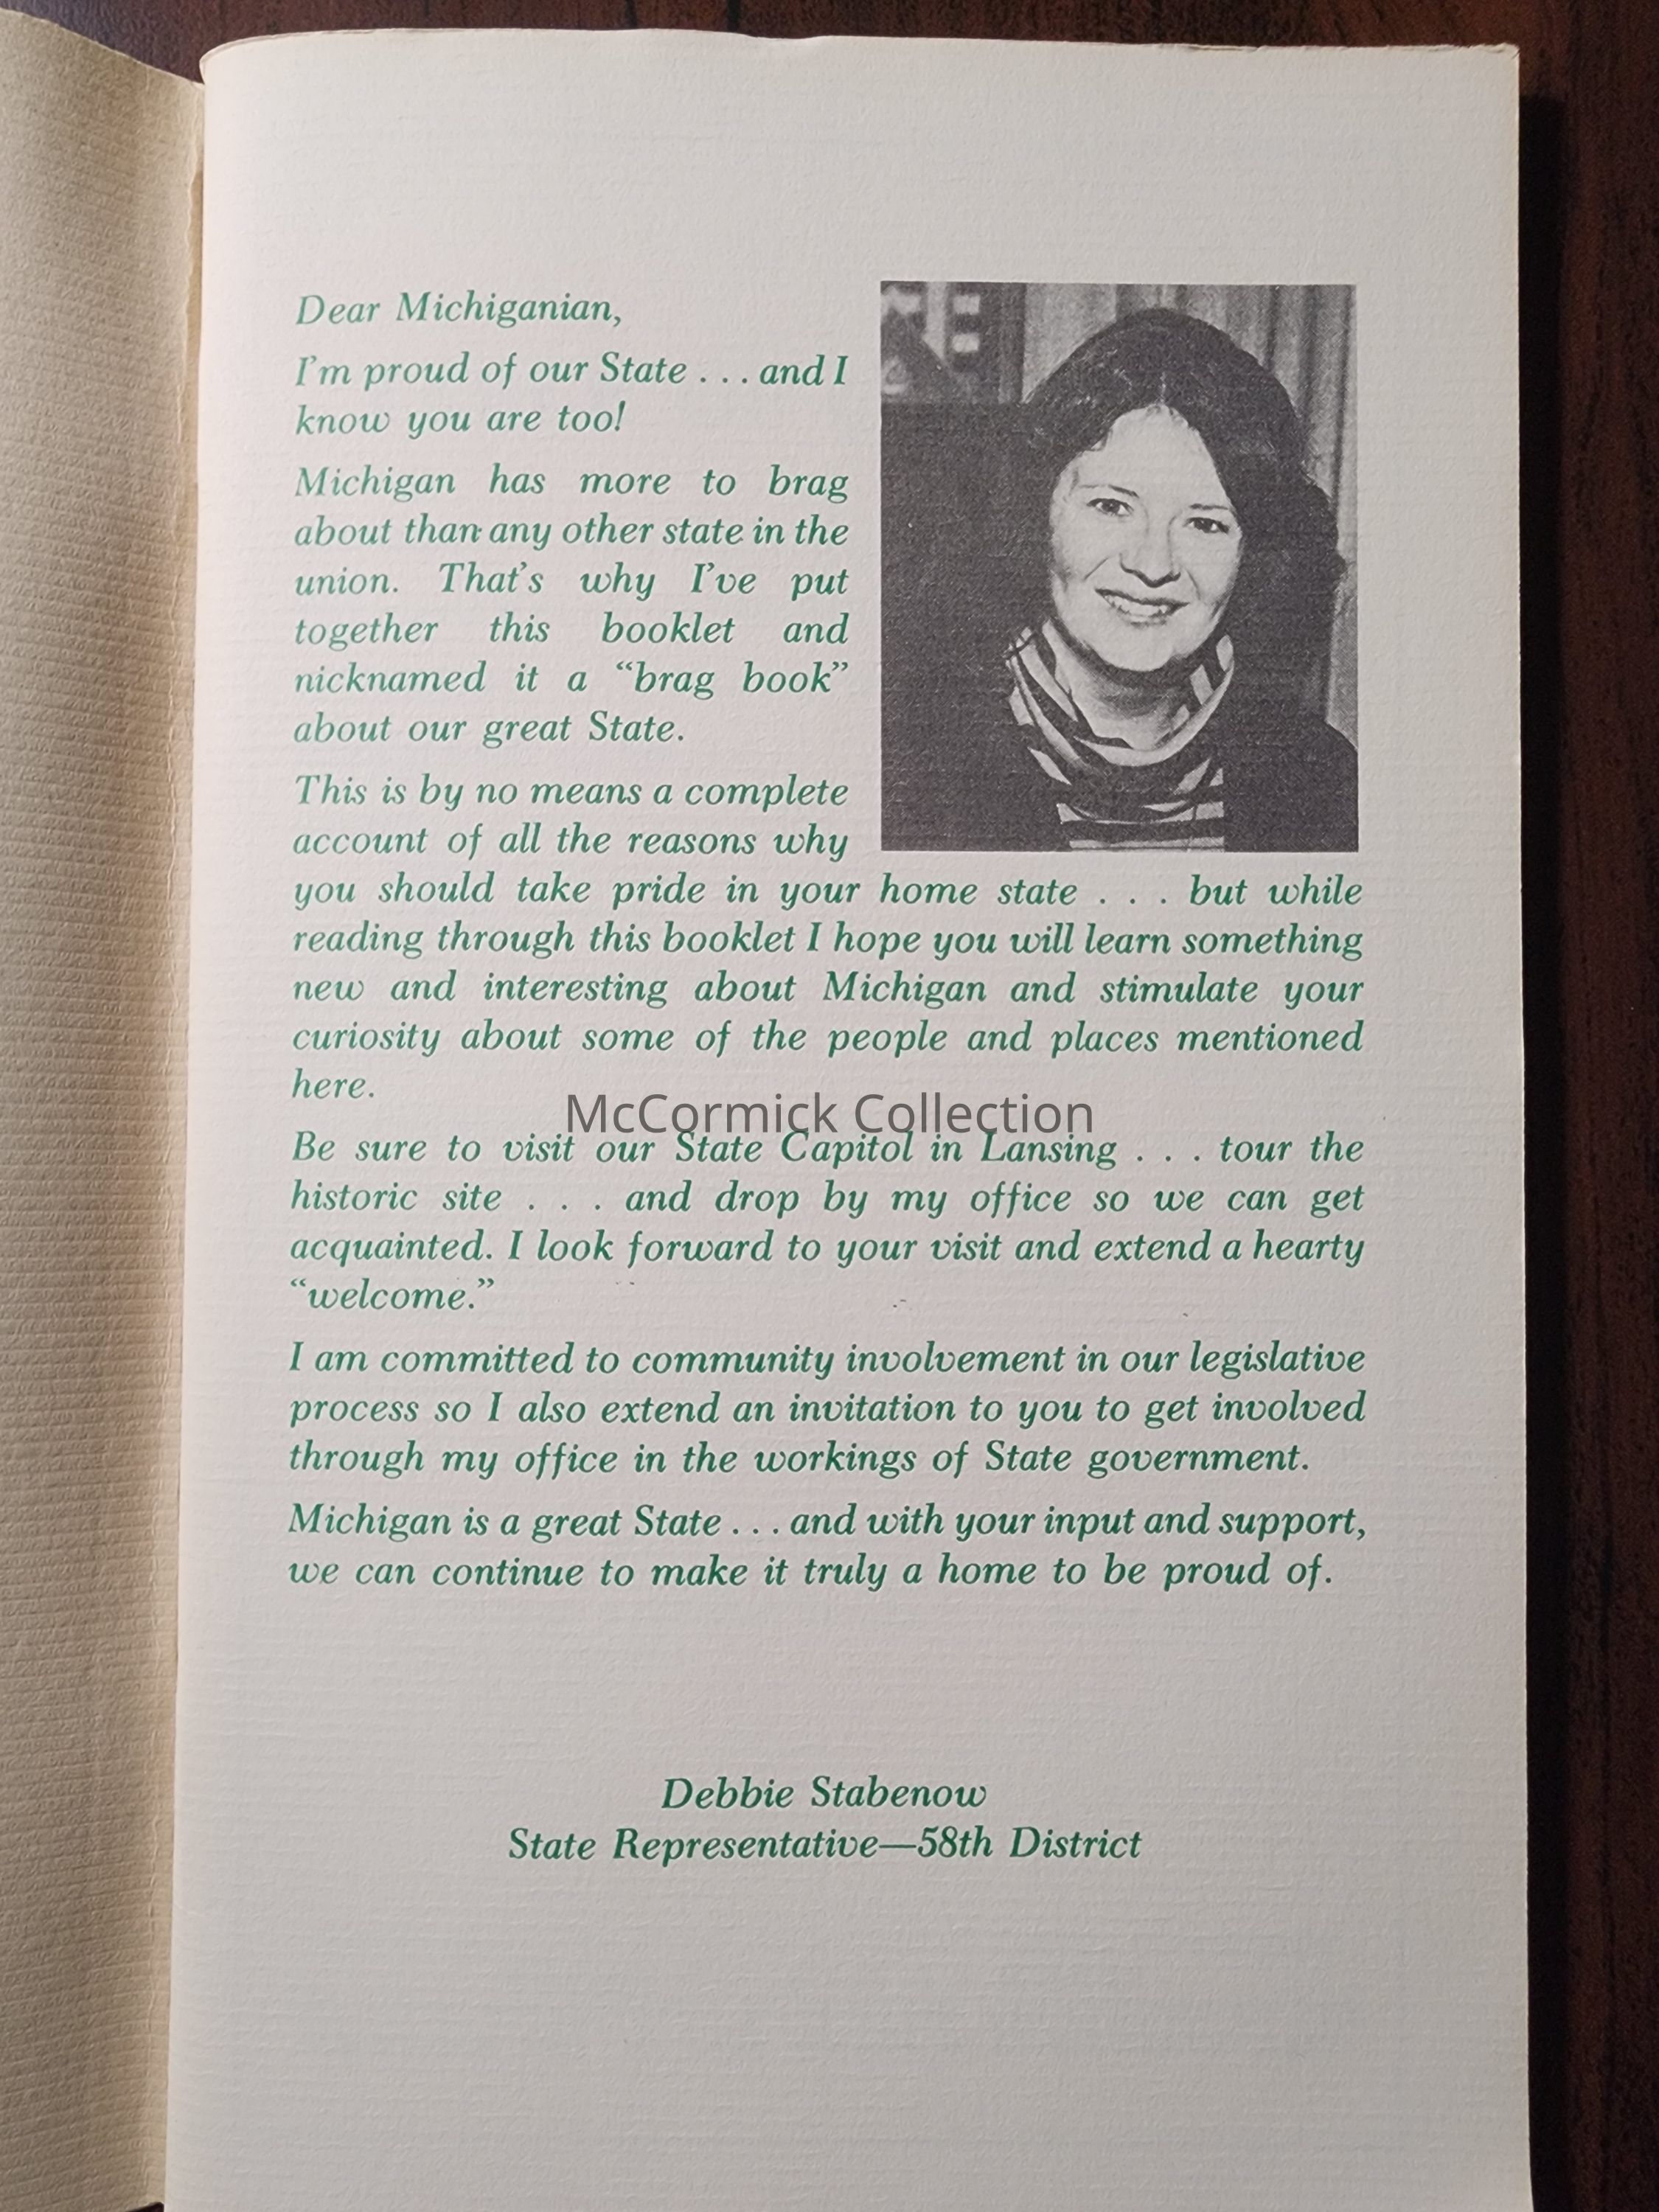 Dear Michiganian,
I'm proud of our State . . . and I
know you are too!
Michigan has more to brag
about than any other state in the
union. That's why I've put
together this booklet and
nicknamed it a “brag book”
about our great State.
This is by no means a complete
account of all the reasons why
you should take pride in your home state . . . but while
reading through this booklet I hope you will learn something
new and interesting about Michigan and stimulate your
curiosity about some of the people and places mentioned
here.
McCormick Collection
Be sure to visit our State Capitol in Lansing . . . tour the
historic site . . . and drop by my office so we can get
acquainted. I look forward to your visit and extend a hearty
“welcome.”
I am committed to community involvement in our legislative
process so I also extend an invitation to you to get involved
through my office in the workings of State government.
Michigan is a great State . . . and with your input and support,
we can continue to make it truly a home to be proud of.
Debbie Stabenow
State Representative—58th District